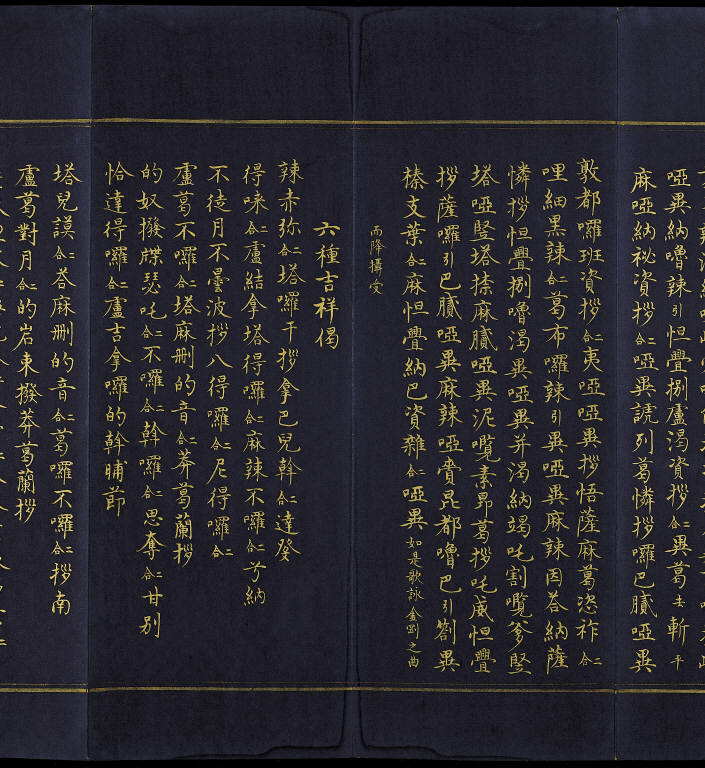 啞異納嚕辣引怛疊捌盧渴資拶合二異葛去斬平
麻啞納祕資拶合二啞異謕列葛憐拶囉巴膩啞異
敦都囉班資拶合二夷啞啞異拶悟薩麻葛恣祚合二
哩細黑辣合二葛布囉辣引異啞異麻辣因荅納薩
憐拶怛疊捌嚕渴異啞異并渴納竭吒割囕爹堅
塔啞堅塔搽麻膩啞異泥囕素昴葛拶吒威怛疊
拶薩囉引巴膩啞異麻辣啞賚昆都嚕巴引劄異
榛支葉合二麻怛疊納巴資雜合二啞異如是歌詠金剛之曲
而降攝受
六種吉祥偈
辣赤弥合二塔囉干拶拿巴兒幹合二達癹
得唻合二盧結拿塔得囉合二麻辣不囉合二兮納
不徒月不曇波拶八得囉合二尼得囉合二
盧葛不囉合二塔麻刪的音合二莽葛蘭拶
的奴撥牒瑟吒合二不囉合二幹囉合二思奪合二甘別
恰達得囉合二盧吉拿囉的幹晡莭
塔兒謨合二荅麻刪的音合二葛囉不囉合二拶南
盧葛對月合二的岩東撥莽葛蘭拶